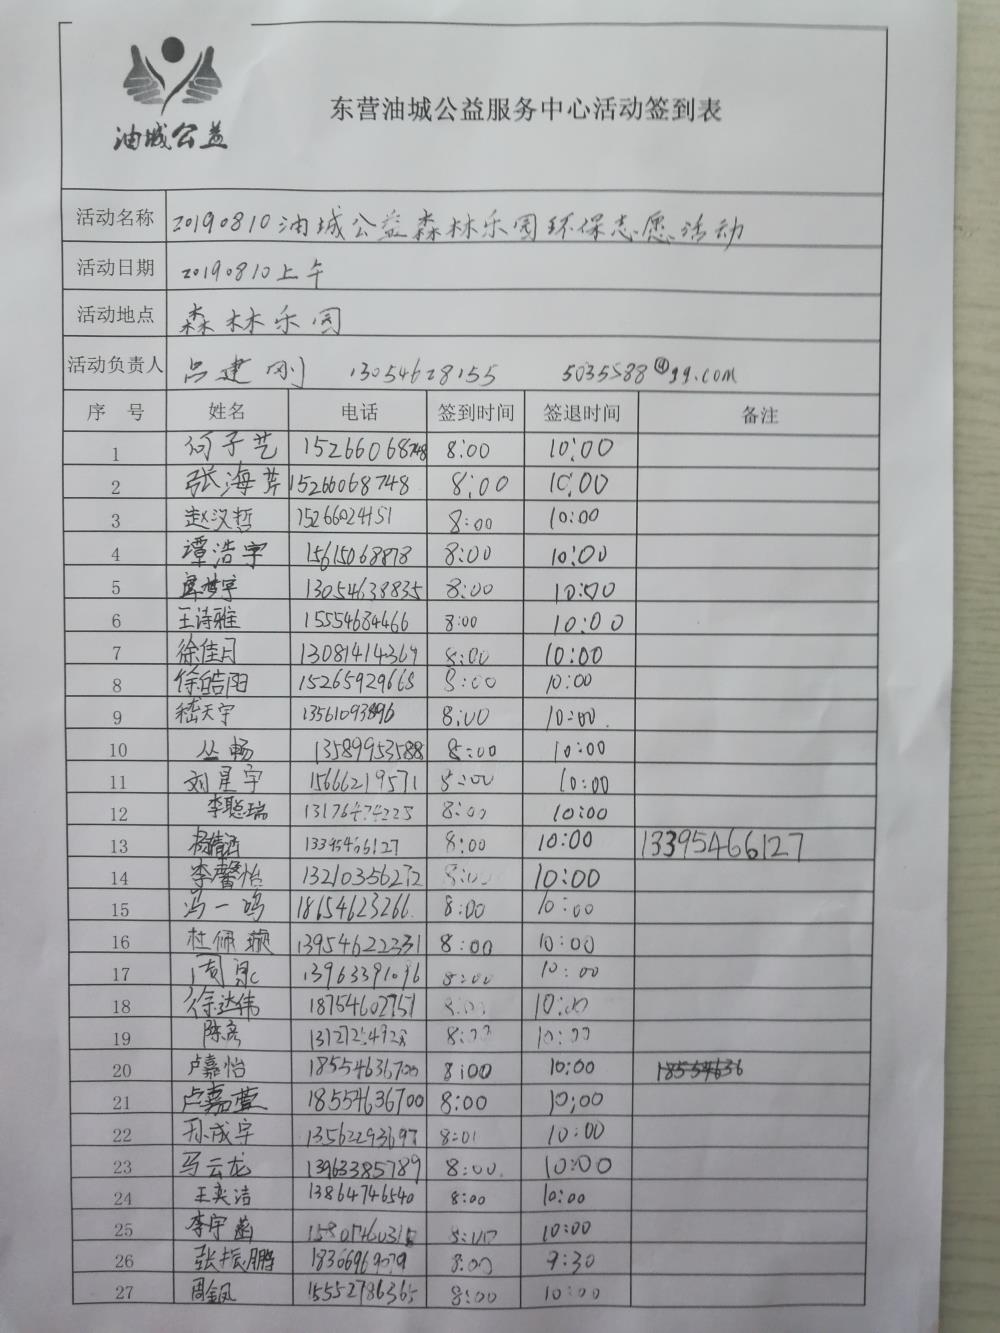 油城公益
东营油城公益服务中心活动签到表
活动名称 20190810油城公益森林乐园环保志愿活动
活动日期 20190810上午
活动地点 森林乐园
活动负责人 吕建刚 13054628155 5035588@qq.com
序号 姓名 电话 签到时间 签退时间 备注
1 何子艺 15266068748 8:00 10:00
2 张海芹 15266068748 8:00 10:00
3 赵汉哲 15266024151 8:00 10:00
4 谭浩宇 15615068878 8:00 10:00
5 13054638835 8:00 10:00
6 王诗雅 15554684466 8:00 10:00
7 徐佳月 13081414369 8:00 10:00
8 徐皓阳 15265929668 8:00 10:00
9 嵇天宇 13561093896 8:00 10:00
10 丛畅 13589953588 8:00 10:00
11 刘星宇 15666219571 8:00 10:00
12 李聪瑞 8:00 10:00
13 13395466127 8:00 10:00 13395466127
14 李馨怡 13210356272 8:00 10:00
15 冯一鸣 18654623266 8:00 10:00
16 杜佩璇 13954622331 8:00 10:00
17 8:00 10:00
18 徐达伟 18754602751 8:00 10:00
19 8:00 10:00
20 卢嘉怡 18554636700 8:00 10:00
21 卢嘉萱 18554636700 8:00 10:00
22 孙成宇 13562293697 8:01 10:00
23 马云龙 13963385789 8:00 10:00
24 王奕洁 13864746540 8:00 10:00
25 李宇菡 8:00 10:00
26 张振鹏 8:00 9:30
27 周金凤 15552786365 8:00 10:00